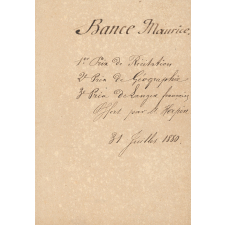 Bance Maurice,
1er Prix de Récitation
2e Prix de Géographie
3e Prix de langue française
Offert par M.
31 Juillet 1880.